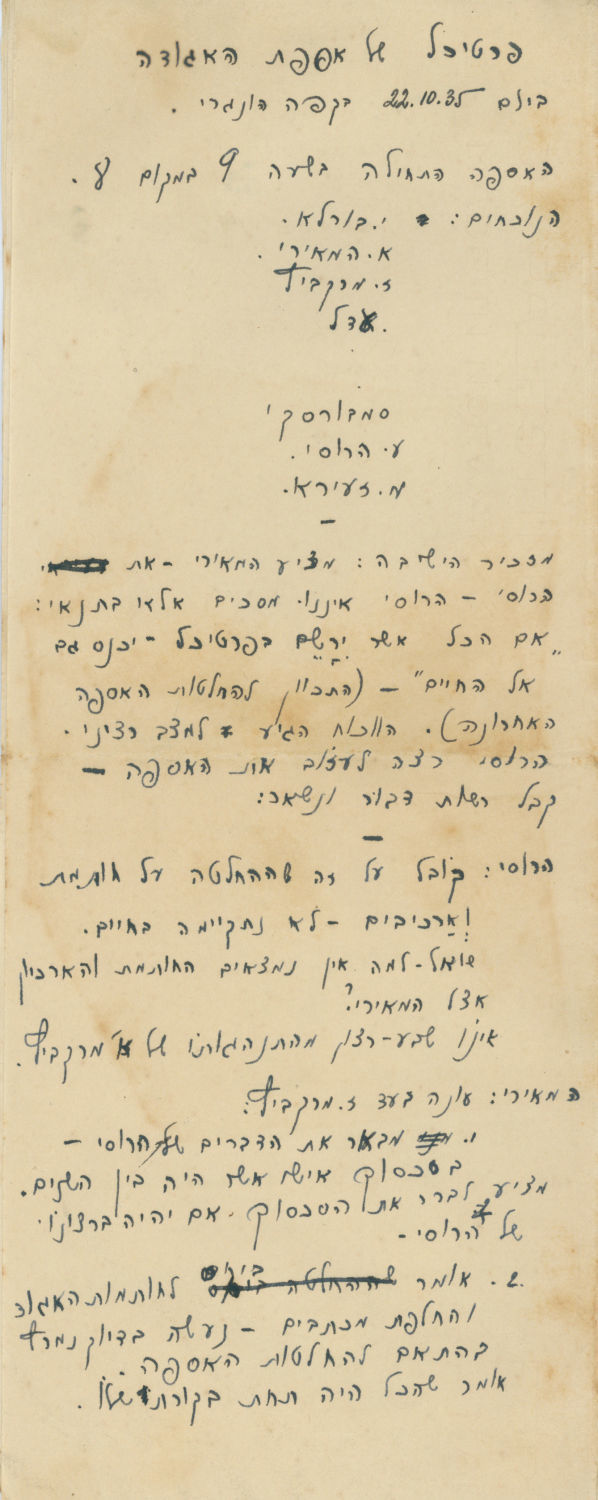 פרטיכל של אספת האגודה
ביום 22.10.35 בקפה הונגרי.
האספה התחילה בשעה 9 במקום 8.
הנוכחים: י. בורלא.
א. המאירי.
ז. מרקביץ
עדל.
סמבורסקי
ע. הרוסי.
מ. זעירא.
–
מזכיר הישיבה: מציע המאירי - את
הרוסי – הרוסי איננו מסכים אלא בתנאי:
„אם הכל אשר ירשם בפרטיכל - יכנס גם
אל החיים" – (התכוון להחלטות האספה
האחרונה). הווכוח הגיע למצב רציני.
הרוסי רצה לעזוב את האספה –
קבל רשות דבור ונשאר:
–
הרוסי: קובל על זה שההחלטה על חותמת
וארכיבים - לא נתקיימה בחיים.
שואל - למה אין נמצאים החותמת והארכיון
אצל המאירי?
אינו שבע-רצון מהתנהגותו של מרקביץ.
המאירי: עונה בעד ז. מרקביץ:
1. מבאר את הדברים של הרוסי –
בסכסוך אישי אשר היה בין השנים.
מציע לברר את הסכסוך. אם יהיה ברצונו
של הרוסי -
2. אומר לחותמות האגודה
והחלפת מכתבים – נעשה בדיוק נמרץ
בהתאם להחלטות האספה.
אומר שהכל היה תחת בקורתו.